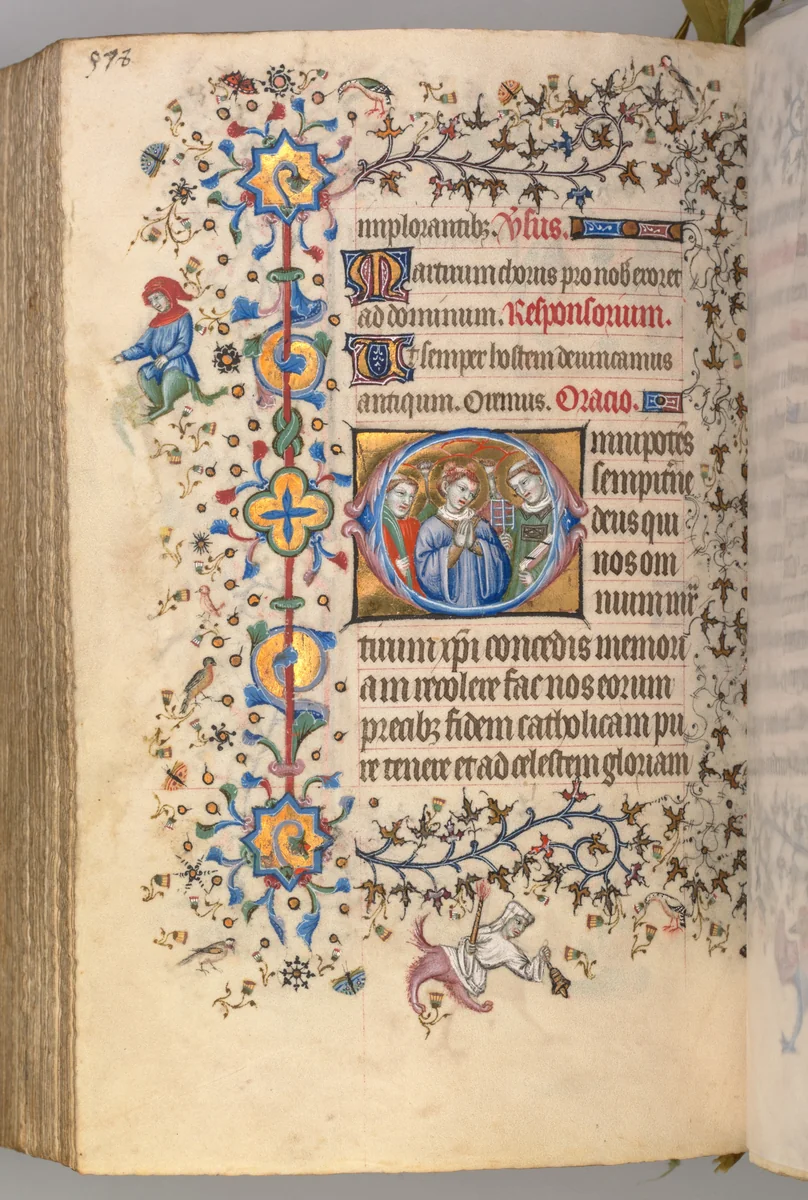 578
implorantib3. V̓sus.
Martirum chorus pro nob̓ exoret
ad dominum. Responsorium.
Ut semper hostem deuincamus
antiqum. Oremus. Oracio.
Omnipotēs
sempit̓ne
deus qui
nos om
nium mr̄
tirum xp̄i concedis memori
am recolere fac nos eorum
precib3 fidem catholicam pu
re tenere et ad celestem gloriam